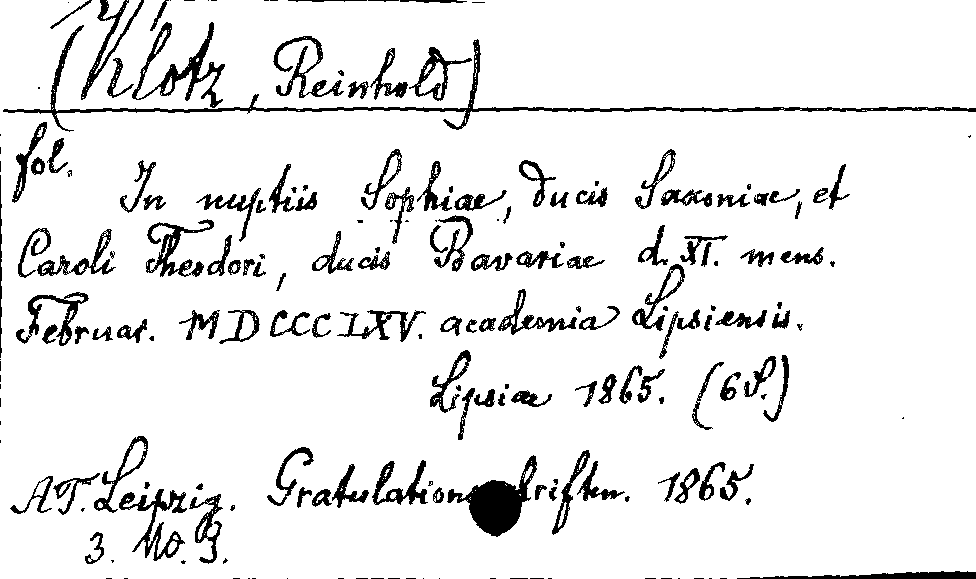 (Klotz, Reinhold)
fol.
In nuptiis Sophiae, ducis Saxoniae, et
Caroli Theodori, ducis Bavariae d. XI. mens.
Februar. MDCCCLXV. academia Lipsiensis.
Lipsiae 1865. (6 S.)
AT. Leipzig. Gratulationsschriften. 1865.
3. No. 3.